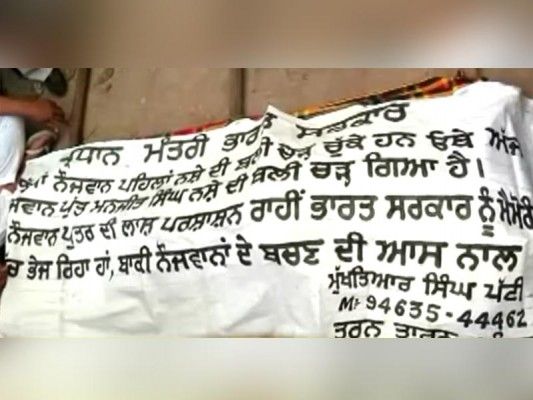 ਪ੍ਰਧਾਨ ਮੰਤਰੀ ਭਾਰਤ ਸਰਕਾਰ
ਨੌਜਵਾਨ ਪਹਿਲਾਂ ਨਸ਼ੇ ਦੀ ਬਲੀ ਚੜ ਚੁੱਕੇ ਹਨ ਓਥੇ ਅੱਜ
ਜਵਾਨ ਪੁੱਤ ਮਨਜੀਤ ਸਿੰਘ ਨਸ਼ੇ ਦੀ ਬਲੀ ਚੜ੍ਹ ਗਿਆ ਹੈ।
ਨੌਜਵਾਨ ਪੁਤਰ ਦੀ ਲਾਸ਼ ਪਰਸ਼ਾਸ਼ਨ ਰਾਹੀਂ ਭਾਰਤ ਸਰਕਾਰ ਨੂੰ ਮੈਮੋਰੀ
ਚ ਭੇਜ ਰਿਹਾ ਹਾਂ, ਬਾਕੀ ਨੌਜਵਾਨਾਂ ਦੇ ਬਚਣ ਦੀ ਆਸ ਨਾਲ
ਮੁੱਖਤਿਆਰ ਸਿੰਘ ਪੱਟੀ
M: 94635-44462
ਤਰਨ ਤਾਰਨ